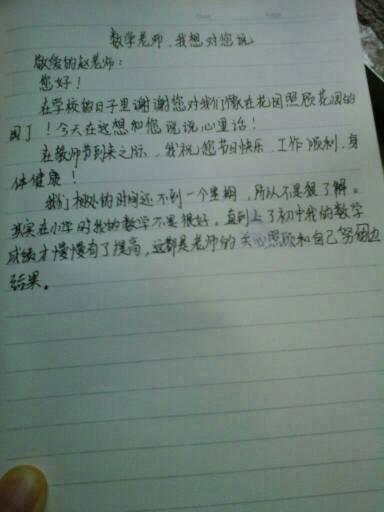 数学老师,我想对您说
敬爱的赵老师:
您好!
在学校的日子里谢谢您对我们像在花园照顾花园的
园丁!今天在这想和您说说心里话!
在教师节到来之际,我祝您节日快乐、工作顺利、身
体健康!
我们相处的时间还不到一个星期,所以不是很了解。
其实在小学时我的数学不是很好,直到上了初中我的数学
成绩才慢慢有了提高,这都是老师的关心照顾和自己努力的
结果。